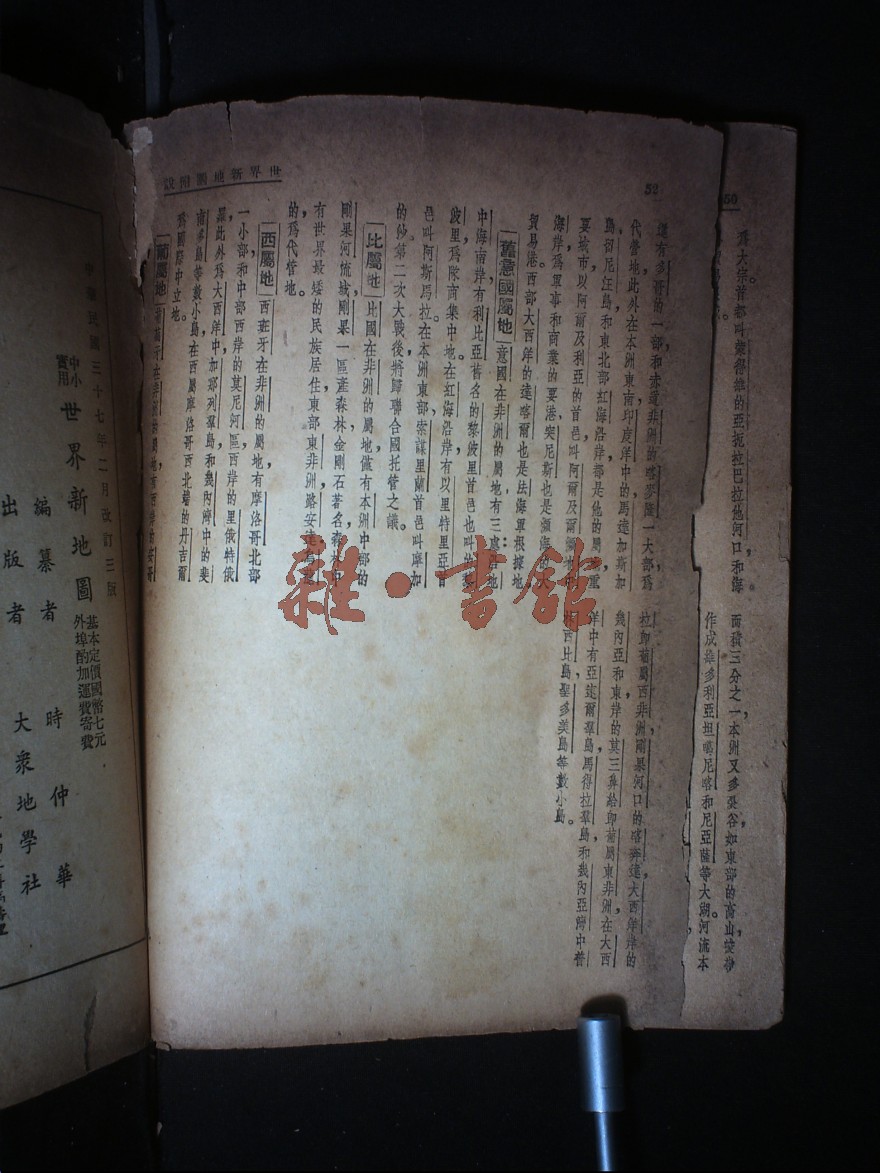 世界新地圖附說
52
還有多哥的一部和赤道非洲的喀麥隆一大部爲
代管地此外在本洲東南印度洋中的馬達加斯加
島初尼汪島和東北部紅海沿岸都是他的屬,重
要城市以阿爾及利亞的首邑叫阿爾及爾瀕地
海岸,爲軍事和商業的要港突尼斯也是瀕海的
貿易港西部大西洋的達喀爾也是法海軍根據地
舊意國屬地 意國在非洲的屬地有三處:在地
中海南岸有利比亞舊名的黎波里首邑也叫的黎
波里爲隊商集中地。在紅海沿岸有以里特里亞首
邑叫阿斯馬拉在本洲東部索謀里蘭首邑叫摩加
的紗第二次大戰後將歸聯合國托管之議。
比屬地 比國在非洲的屬地僅有本洲中部的
剛果河流域,剛果一區產森林金剛石著名,森林中
有世界最矮的民族居住東部東非洲路安達
的,爲代管地。
西屬地 西班牙在非洲的屬地有摩洛哥北部
一小部和中部西岸的莫尼河區西岸的里俄特俄
羅,此外爲大西洋中加那列羣島和幾內灣中的斐
南波島等數小島在西屬摩洛哥西北端的丹吉爾
爲國際中立地。
葡屬地 葡萄牙在非洲的屬地有西岸的安哥
拉卽葡屬西非洲剛果河口的喀奔達大西洋岸的
幾內亞和東岸的莫三鼻給卽葡屬東非洲在大西
洋中有亞速爾羣島馬得拉羣島和幾內亞灣中普
林西比島聖多美島等數小島。
50
爲大宗首都叫柴得維的亞扼拉巴拉他河口和海。
面積三分之一本洲又多張谷如東部的高山縱谷
作成維多利亞坦噶尼喀和尼亞薩等大湖河流本
中華民國三十七年二月改訂三版
中小實用 世界新地圖 基本定價國幣七元 外埠酌加運費寄費
編纂者 時仲華
出版者 大衆地學社
雜·書館